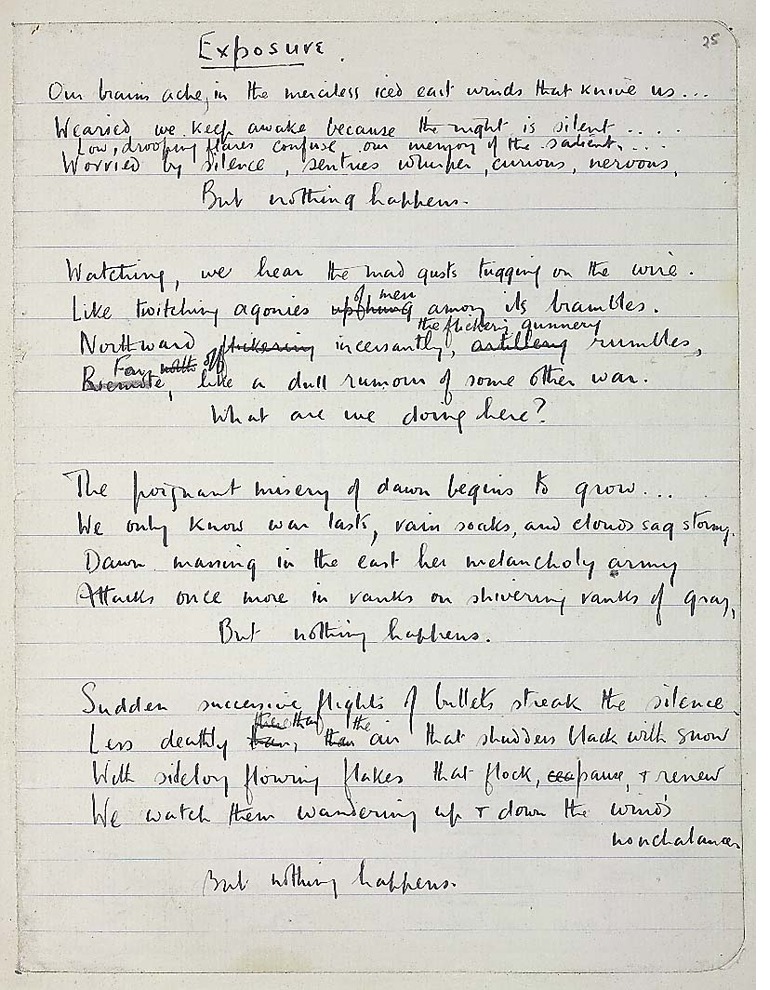 25
Exposure.
Our brains ache, in the merciless iced east winds that knive us...
Wearied we keep awake because the night is silent....
Low, drooping flares confuse our memory of the salient....
Worried by silence, sentries whisper, curious, nervous,
But nothing happens.
Watching, we hear the mad gusts tugging on the wire.
of men
Like twitching agonies among its brambles.
the flickering gunnery
Northward flickering incessantly, artillery rumbles,
Far north off
Remote, like a dull rumour of some other war.
What are we doing here?
The poignant misery of dawn begins to grow...
We only know war lasts, rain soaks, and clouds sag stormy.
Dawn massing in the east her melancholy army
Attacks once more in ranks on shivering ranks of gray,
But nothing happens.
Sudden successive flights of bullets streak the silence.
than the
Less deathly than air that shudders black with snow
With sidelong flowing flakes that flock, pause, + renew
We watch them wandering up + down the wind's
nonchalance
But nothing happens.